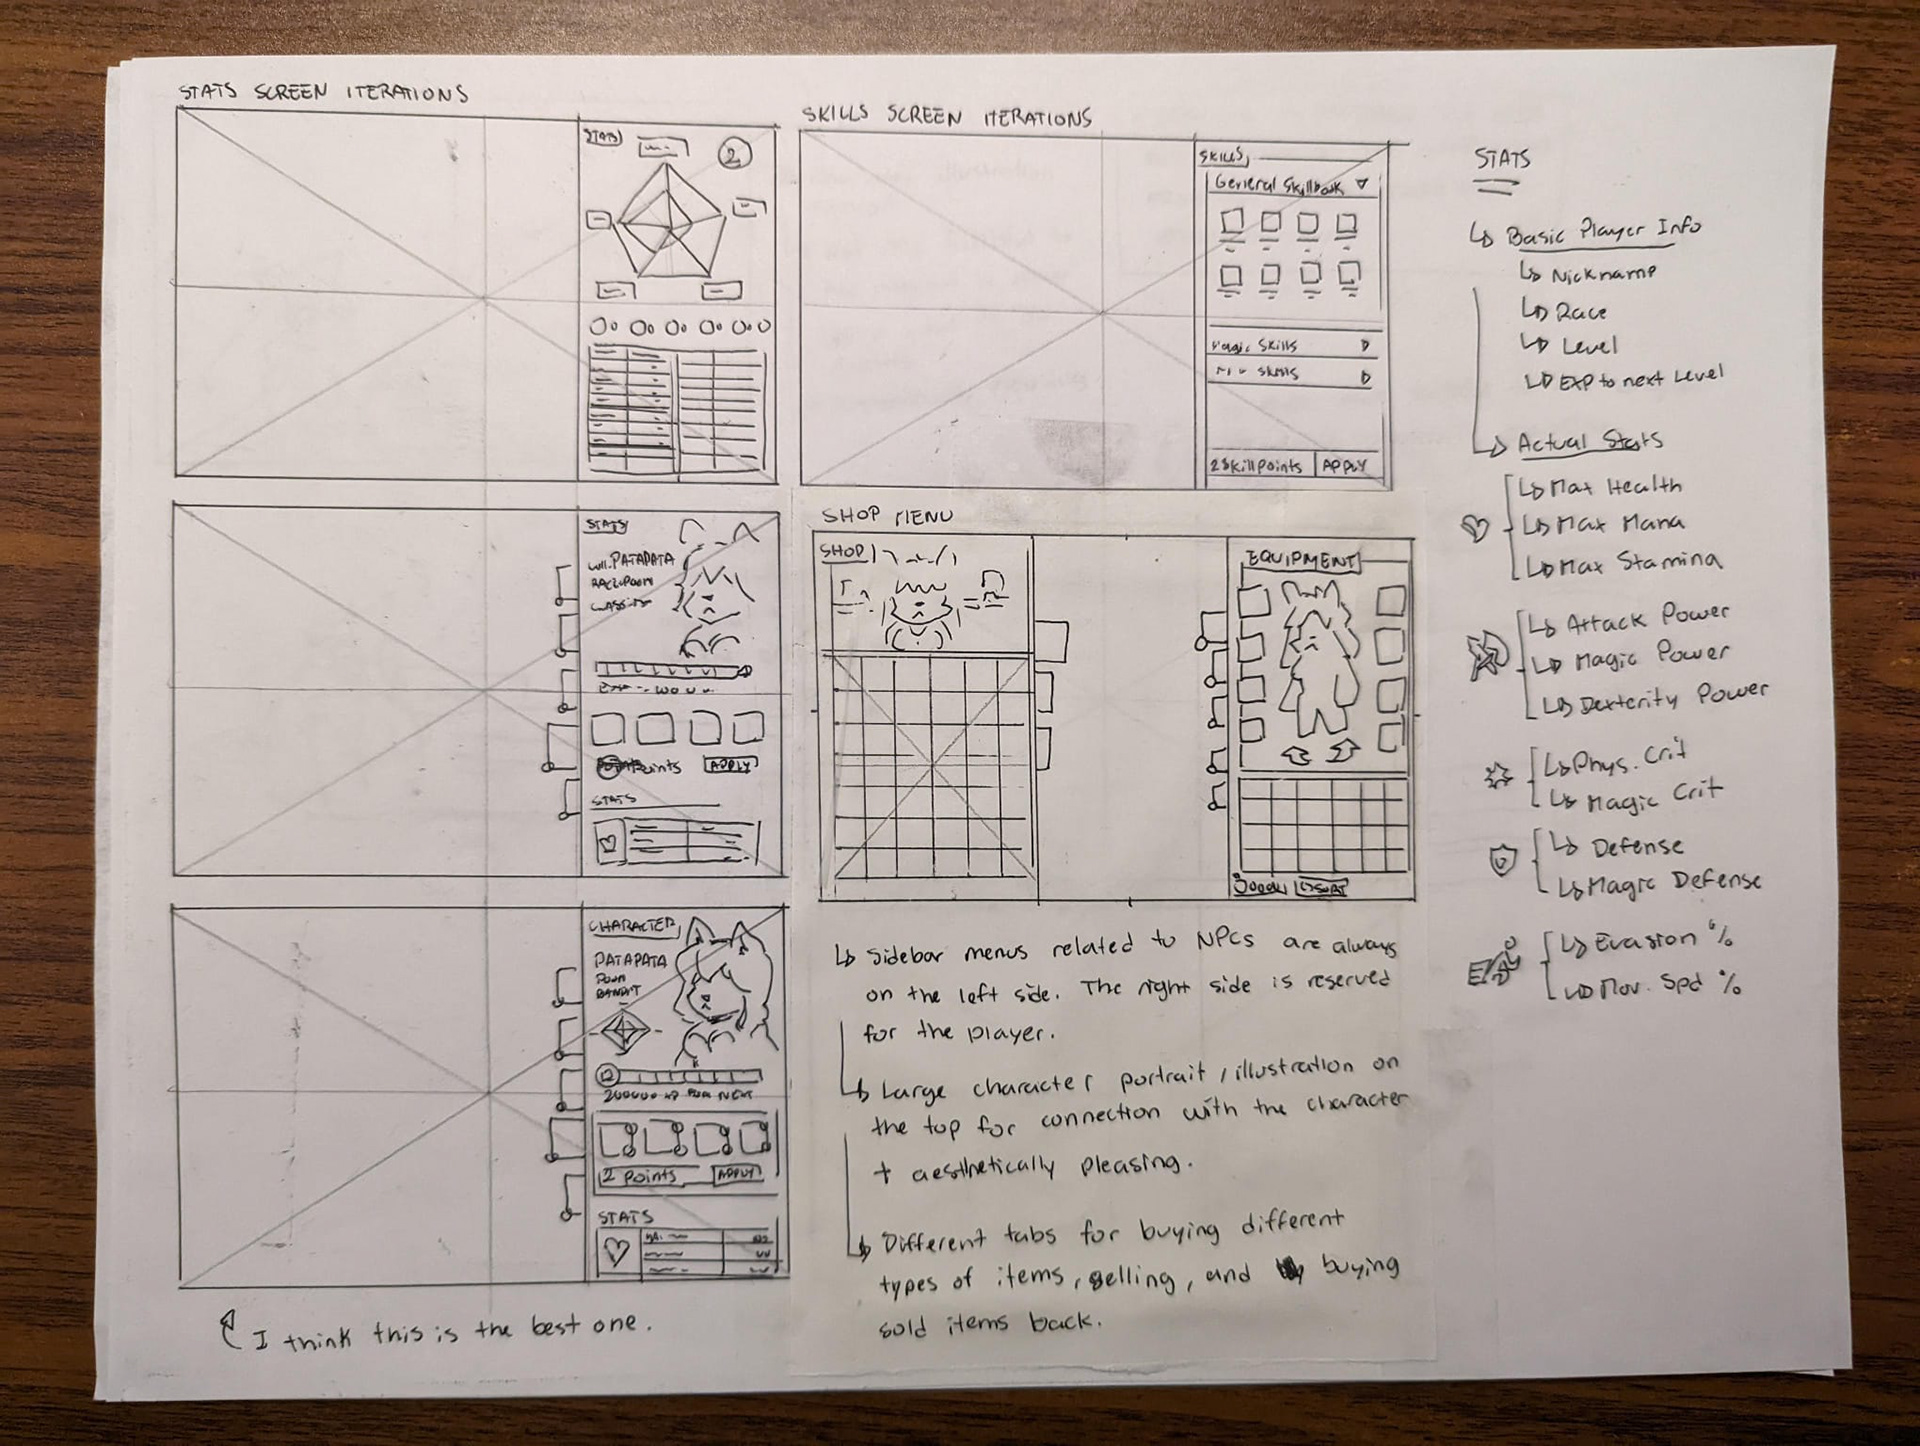 STATS SCREEN ITERATIONS
STATS
2
STATS
PATAPATA
Points
APPLY
STATS
CHARACTER
PATAPATA
POOM
BANDIT
12
200000 XP FOR NEXT
2 Points
APPLY
STATS
I think this is the best one.
SKILLS SCREEN ITERATIONS
SKILLS
General Skillbook
Magic Skills
Skills
2 Skill Points
APPLY
SHOP MENU
SHOP
EQUIPMENT
SORT
Sidebar menus related to NPCs are always
on the left side. The right side is reserved
for the player.
Large character portrait / illustration on
the top for connection with the character
+ aesthetically pleasing.
Different tabs for buying different
types of items, selling, and buying
sold items back.
STATS
Basic Player Info
Nickname
Race
Level
EXP to next Level
Actual Stats
Max Health
Max Mana
Max Stamina
Attack Power
Magic Power
Dexterity Power
Phys. Crit
Magic Crit
Defense
Magic Defense
Evasion %
Mov. Spd %